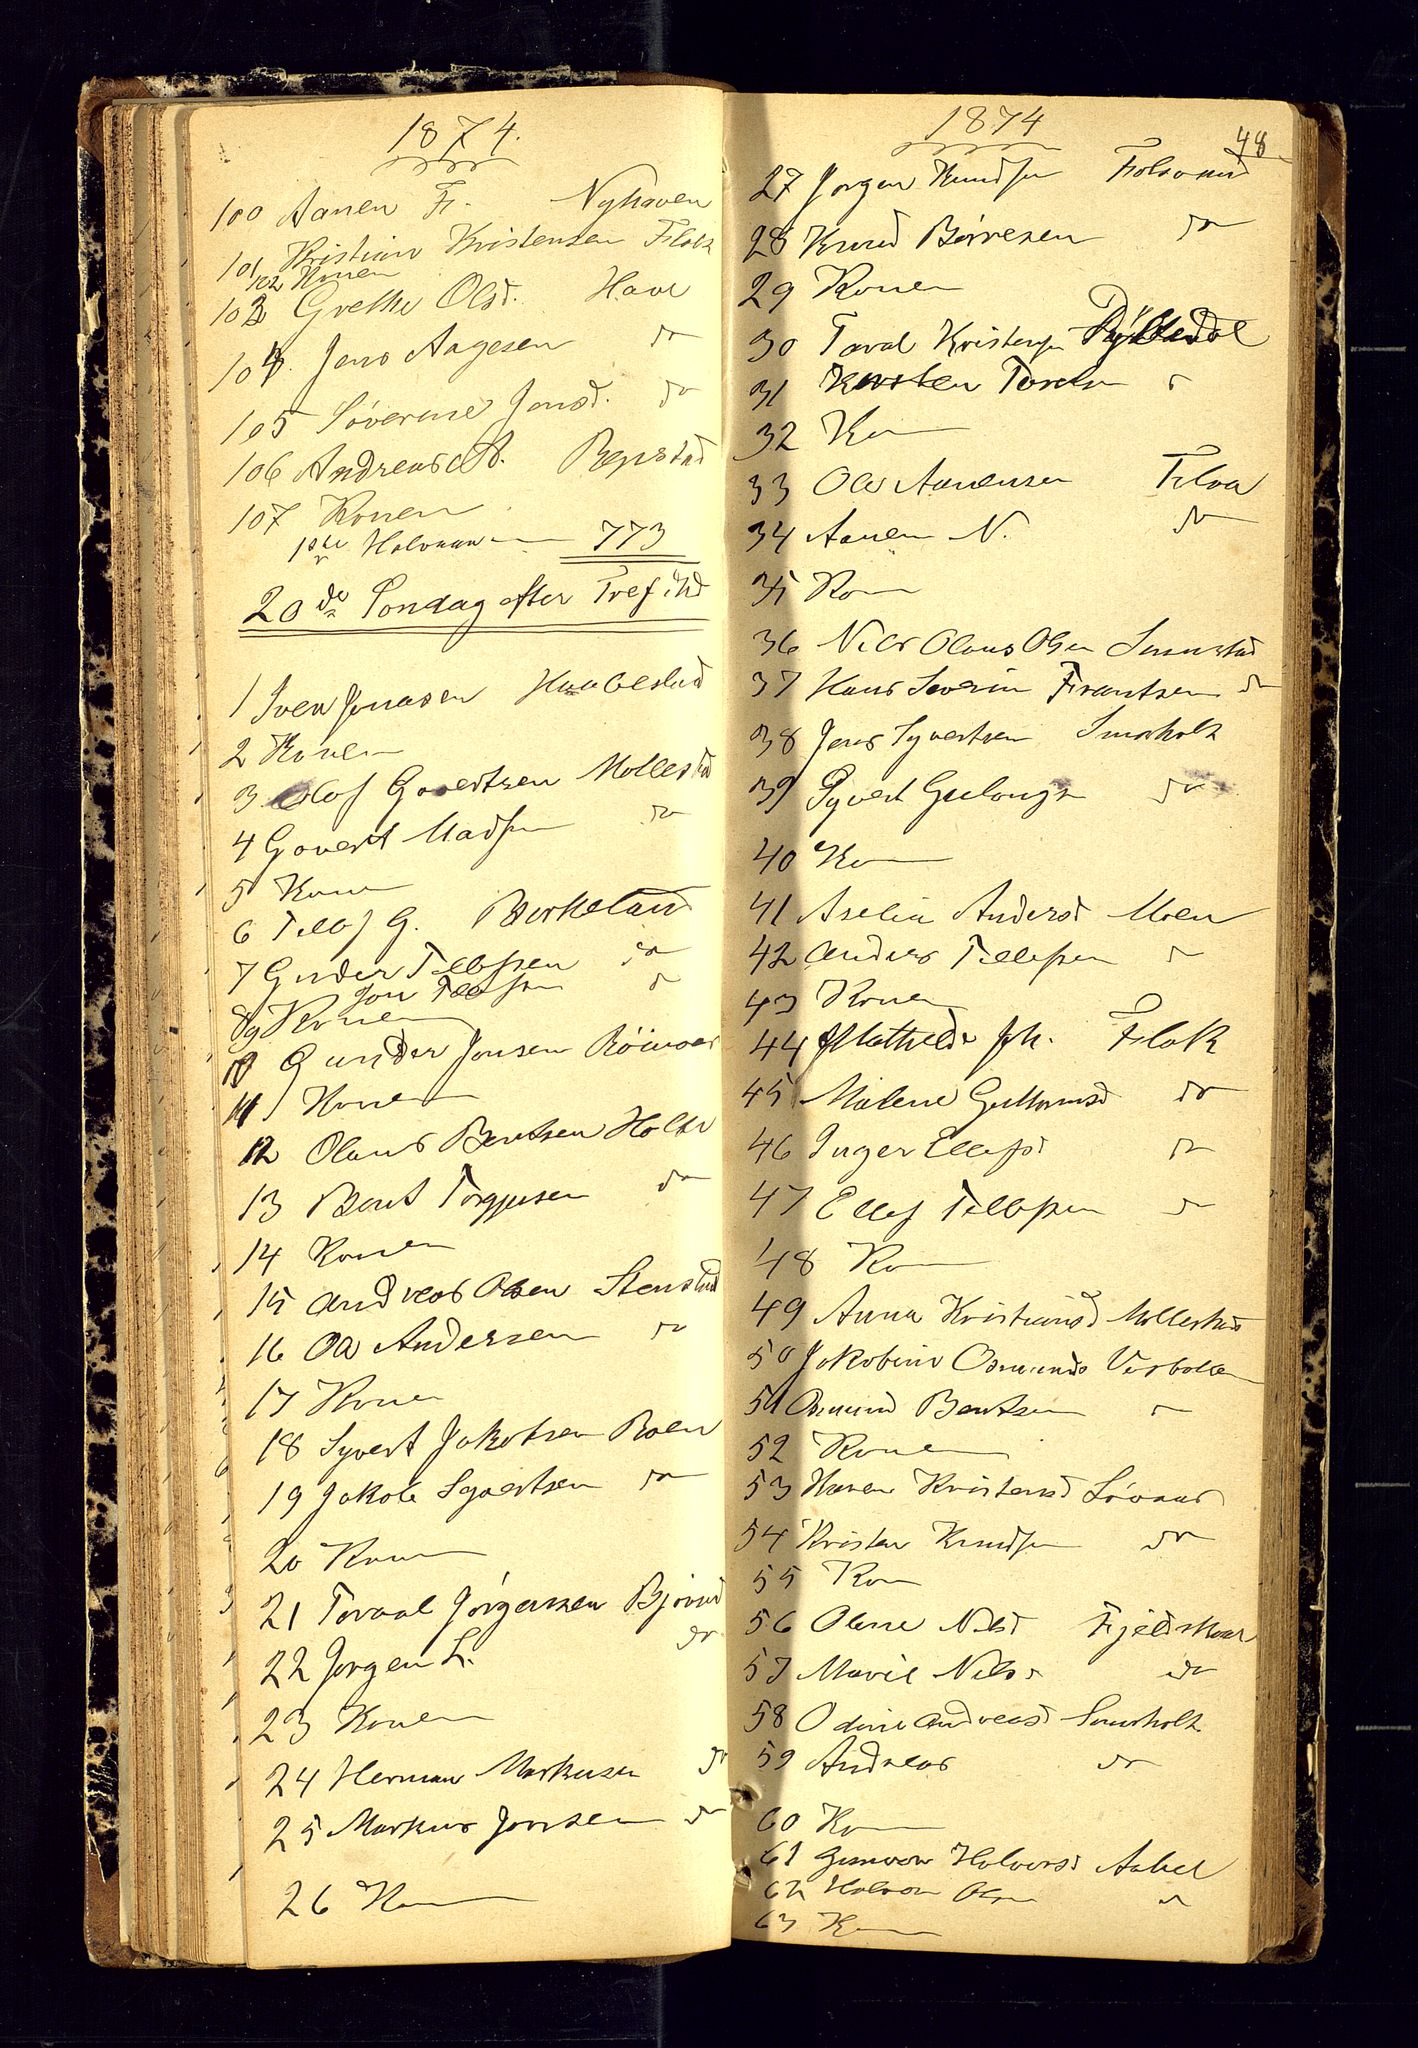 1874.
100 Aanen Fr. Nyhaven
101 Kristian Kristensen Flak
102 Konen
103 Grethe Olsd. Have
104 Jens Aagesen do
105 Söverine Jensd. do
106 Andreas A. Repstad
107 Konen
773
20de Söndag efter Tref.
1 Sven Jonasen Haabestad
2 Konen
3 Olaf Govertsen Mollestad
4 Govert Madsen do
5 Konen
6 Tellef G. Birkeland
7 Gunder Tellefsen do
8 Jon Tellefsen do
9 Konen
10 Gunder Jonsen
11 Konen
12 Olaus Bentsen Holte
13 Bent Torgjusen do
14 Konen
15 Andreas Olsen Stenstad
16 Ola Andersen do
17 Konen
18 Syvert Jakobsen Roen
19 Jakob Syvertsen do
20 Konen
21 Toraal Jörgensen
22 Jörgen L. do
23 Konen
24 Herman Markusen do
25 Markus Jonsen do
26 Konen
1874
48
27 Jörgen Knudsen
28 Knud Börresen do
29 Konen
30 Toral Kristensen
31 Kristen Toralsen do
32 Konen
33 Ole Aanensen
34 Aanen N. do
35 Konen
36 Nils Olaus Olsen
37 Hans Severin Frantsen do
38 Jens Syvertsen Smorholt
39 Syvert do
40 Konen
41 Aselia Andersd Moen
42 Anders Tellefsen do
43 Konen
44 Mathilde Joh. Flak
45 Malene Guttormsd do
46 Inger Ellefsd do
47 Ellef Tellefsen do
48 Konen
49 Anna Kristiansd Mollestad
50 Jakobine Osmunds
51 Osmund Bentsen do
52 Konen
53 Karen Kristensd
54 Kristen Knudsen do
55 Konen
56 Olene Nilsd Fjeldskaar
57 Marie Nilsd do
58 Odine Andreasd Smorholt
59 Andreas do
60 Konen
61 Gunvor Halvorsd Aabel
62 Halvor Olsen do
63 Konen